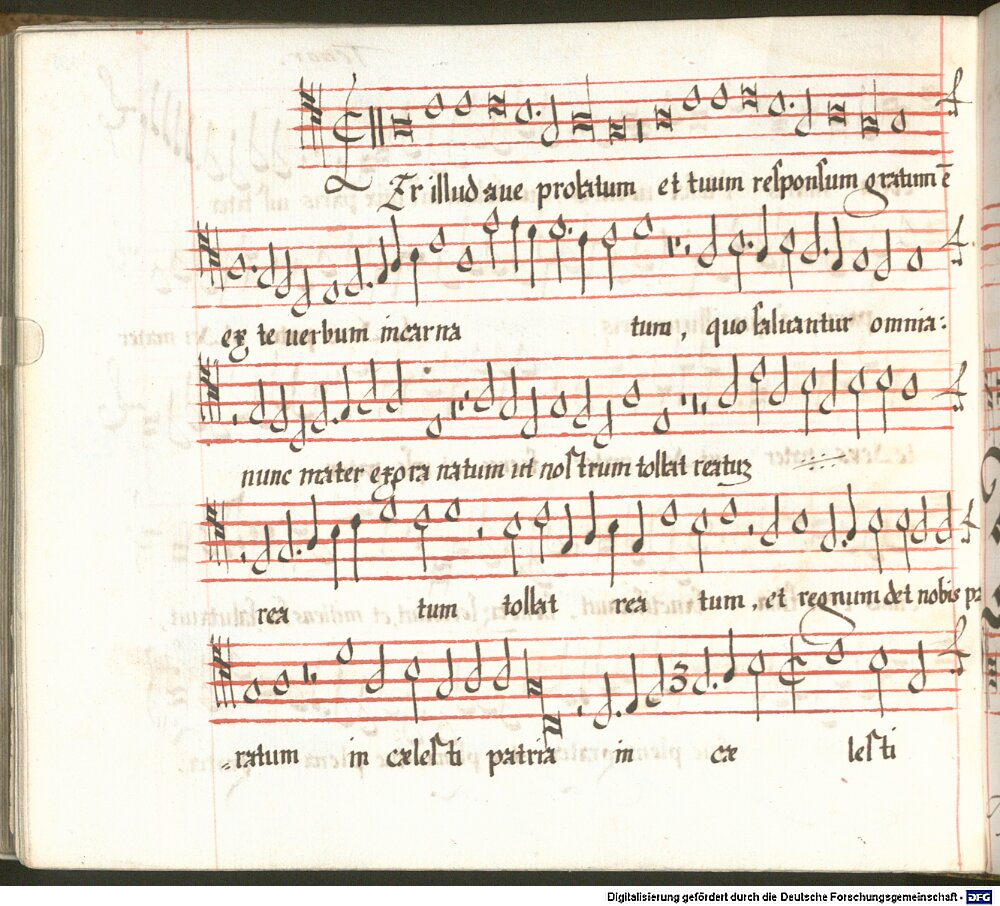 Per illud aue prolatum et tuum responsum gratum ē
ex te uerbum incarna tum, quo saluantur omnia:
nunc mater exora natum ut nostrum tollat reatuȝ
rea tum tollat rea tum, et regnum det nobis pa
=ratum in cælesti patria in cæ lesti
Digitalisierung gefördert durch die Deutsche Forschungsgemeinschaft - DFG